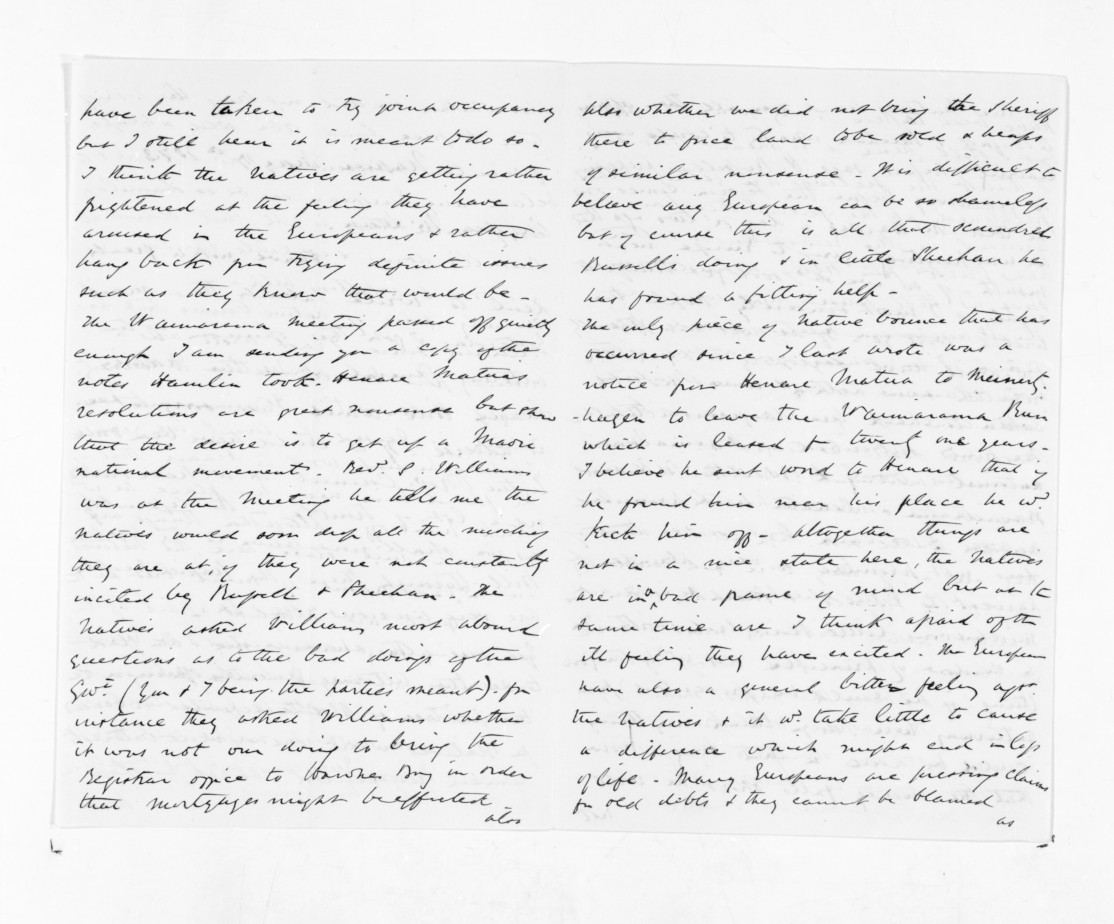 have been taken to try joint occupancy
but I still hear it is meant to do so -
I think the Natives are getting rather
frightened at the feeling they have
aroused in the Europeans & rather
hang back from trying definite issues
such as they know that would be -
The Waimarama Meeting passed off quietly
enough I am sending you a copy of the
notes Hamlin took - Henare Matuas
resolutions are great nonsense but show
that the desire is to get up a Maori
national movement - Revd. S. Williams
was at the Meeting he tells me the
Natives would soon drop all the mischief
they are at, if they were not constantly
incited by Russell & Sheehan - The
Natives asked Williams most absurd
questions as to the bad doings of the
Govt. (You & I being the parties meant). For
instance they asked Williams whether
it was not our doing to bring the
Registrar office to Hawkes Bay in order
that mortgages might be effected -
also
also whether we did not bring the Sheriff
there to force land to be sold & heaps
of similar nonsense - It is difficult to
believe any European can be so shameless
but of course this is all that scoundrel
Russell's doing & in little Sheehan he
has found a fitting help -
The only piece of Native bounce that has
occurred since I last wrote was a
notice from Henare Matua to Meinertz-
-hagen to leave the Waimarama Run
which is leased for twenty one years -
I believe he sent word to Henare that if
he found him near his place he wd.
kick him off - Altogether things are
not in a nice state here, the Natives
are in a bad frame of mind but at the
same time are I think afraid of the
ill feeling they have excited - The Europeans
have also a general bitter feeling agst
the Natives & it wd. take little to cause
a difference which might end in loss
of life - Many Europeans are pressing claims
for old debts & they cannot be blamed
as